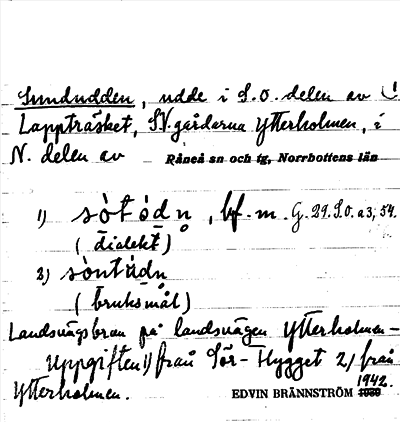 Sundudden, udde i S.O. delen av
Lappträsket, SV. gårdarna Ytterholmen, i
N. delen av Råneå sn och tg, Norrbottens län
1) sòtòdn, bf. m. G. 29. S.O. a3; 54.
(dialekt)
2) sòntùdn
(bruksmål)
Landsvägsbron på landsvägen Ytterholmen -
Uppgiften 1) från Sör-Hygget 2) från
Ytterholmen.
1942.
EDVIN BRÄNNSTRÖM